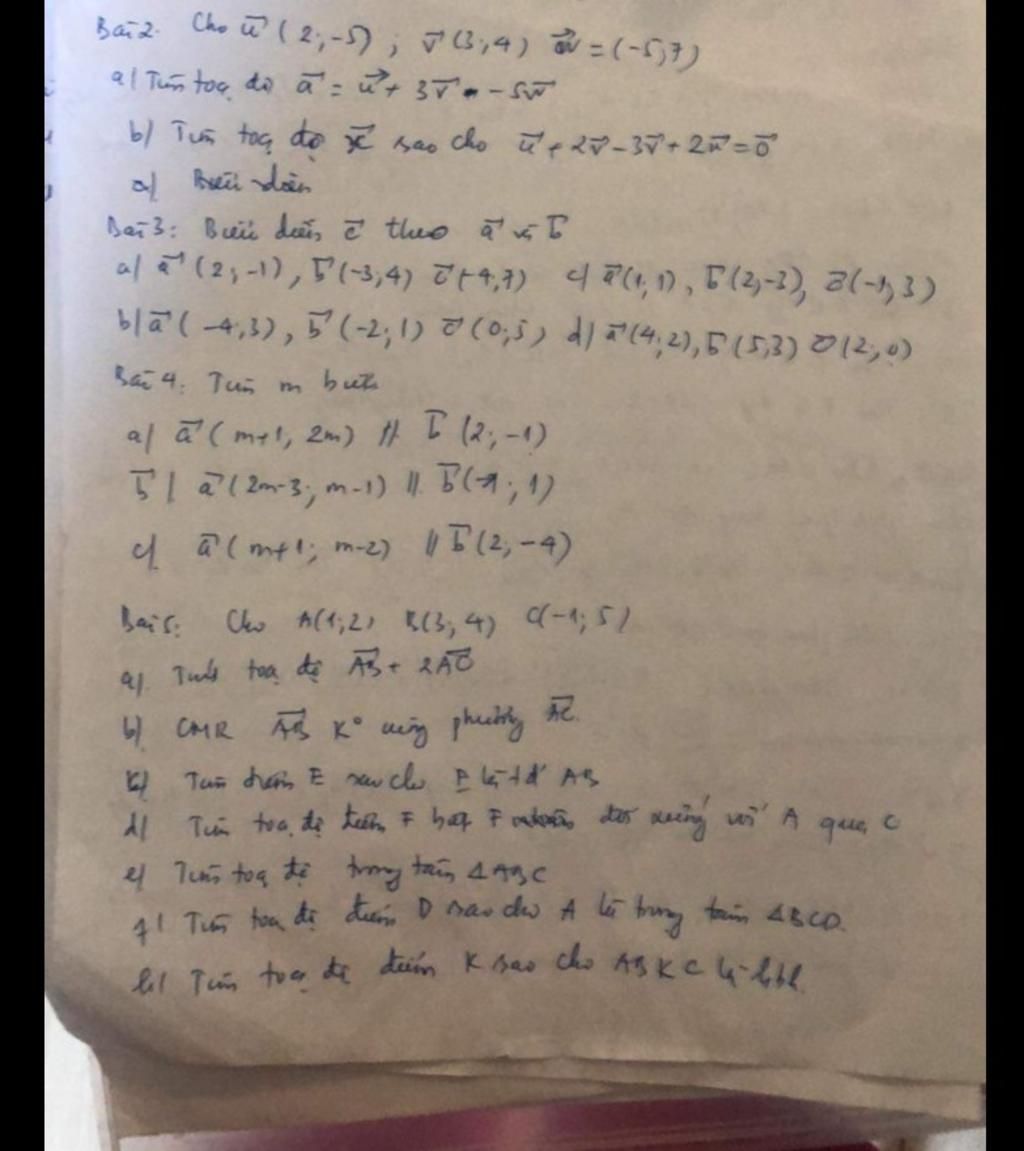 Bài 2. Cho u⃗ (2;-5) ; v⃗ (3;4) w⃗ = (-5;7)
a/ Tìm toạ độ a⃗ = u⃗ + 3v⃗ - 5w⃗
b/ Tìm toạ độ x⃗ sao cho u⃗ + 2v⃗ - 3v⃗ + 2x⃗ = 0⃗
a/ Biểu diễn
Bài 3: Biểu diễn c⃗ theo a⃗ và b⃗
a/ a⃗ (2;-1), b⃗ (-3;4) c⃗ (-4;7) c/ a⃗ (1;1), b⃗ (2;-3), c⃗ (-1;3)
b/ a⃗ (-4;3), b⃗ (-2;1) c⃗ (0;5) d/ a⃗ (4;2), b⃗ (5;3) c⃗ (2;0)
Bài 4: Tìm m biết
a/ a⃗ (m+1, 2m) // b⃗ (2;-1)
b/ a⃗ (2m-3; m-1) // b⃗ ( ;1)
c/ a⃗ (m+1; m-2) // b⃗ (2;-4)
Bài 5: Cho A(1;2) B(3;4) C(-1;5)
a/ Tính toạ độ AB⃗ + 2AC⃗
b/ CMR AB⃗ K° cùng phương AC⃗
c/ Tìm điểm E sao cho E là tđ AB
d/ Tìm toạ độ điểm F biết F đối xứng với A qua C
e/ Tìm toạ độ trọng tâm ΔABC
f/ Tìm toạ độ điểm D sao cho A là trọng tâm ΔBCD.
h/ Tìm toạ độ điểm K sao cho ABKC là hbh.